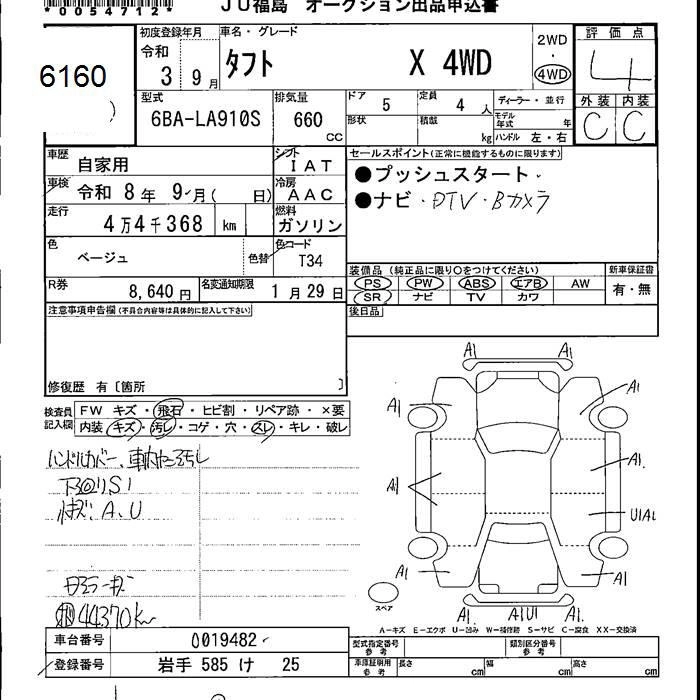 *0054712*
JU福島 オークション出品申込書
6160
初度登録年月
令和
3 9 月
車名・グレード
タフト X 4WD
2WD
・
4WD
評価点
4
外装 内装
C C
型式
6BA-LA910S
排気量
660
CC
ドア 5
定員 4 人
ディーラー・並行
形状
積載 kg
モデル年式 年
ハンドル 左・右
車歴
自家用
シフト
I A T
車検
令和 8 年 9 月 ( 日)
冷房
A A C
走行
4万4千368 km
燃料
ガソリン
色
ベージュ
色替
色コード
T34
R券
8,640 円
名変通知期限
1 月 29 日
セールスポイント(正常に機能するものに限ります)
●プッシュスタート・
●ナビ・DTV・Bカメラ
装備品 (純正品に限り○をつけてください)
PS PW ABS エアB AW
SR ナビ TV カワ
新車保証書
有・無
後日品
注意事項申告欄(不具合内容等は具体的に記入して下さい)
修復歴 有〔箇所 〕
検査員記入欄
FW キズ・飛石・ヒビ割・リペア跡・×要
内装 キズ・汚レ・コゲ・穴・スレ・キレ・破レ
ハンドルカバー、車内
A、U
44370km
A1 A1
A1 A1
A1 A1.
U1A1
A1 A1
A1. A1U1 A1
スペア
A-キズ E-エクボ U-凹み W-補修跡 S-サビ C-腐食 XX-交換済
車台番号
0019482
登録番号
岩手 585 け 25
型式指定番号
参考
類別区分番号
参考
車庫証明用
参考
長さ cm
幅 cm
高さ cm